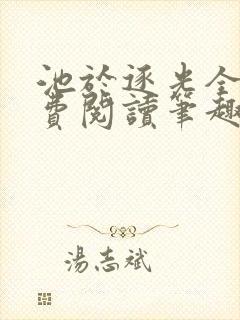 池於逐光全
費閱讀筆趣
湯志斌